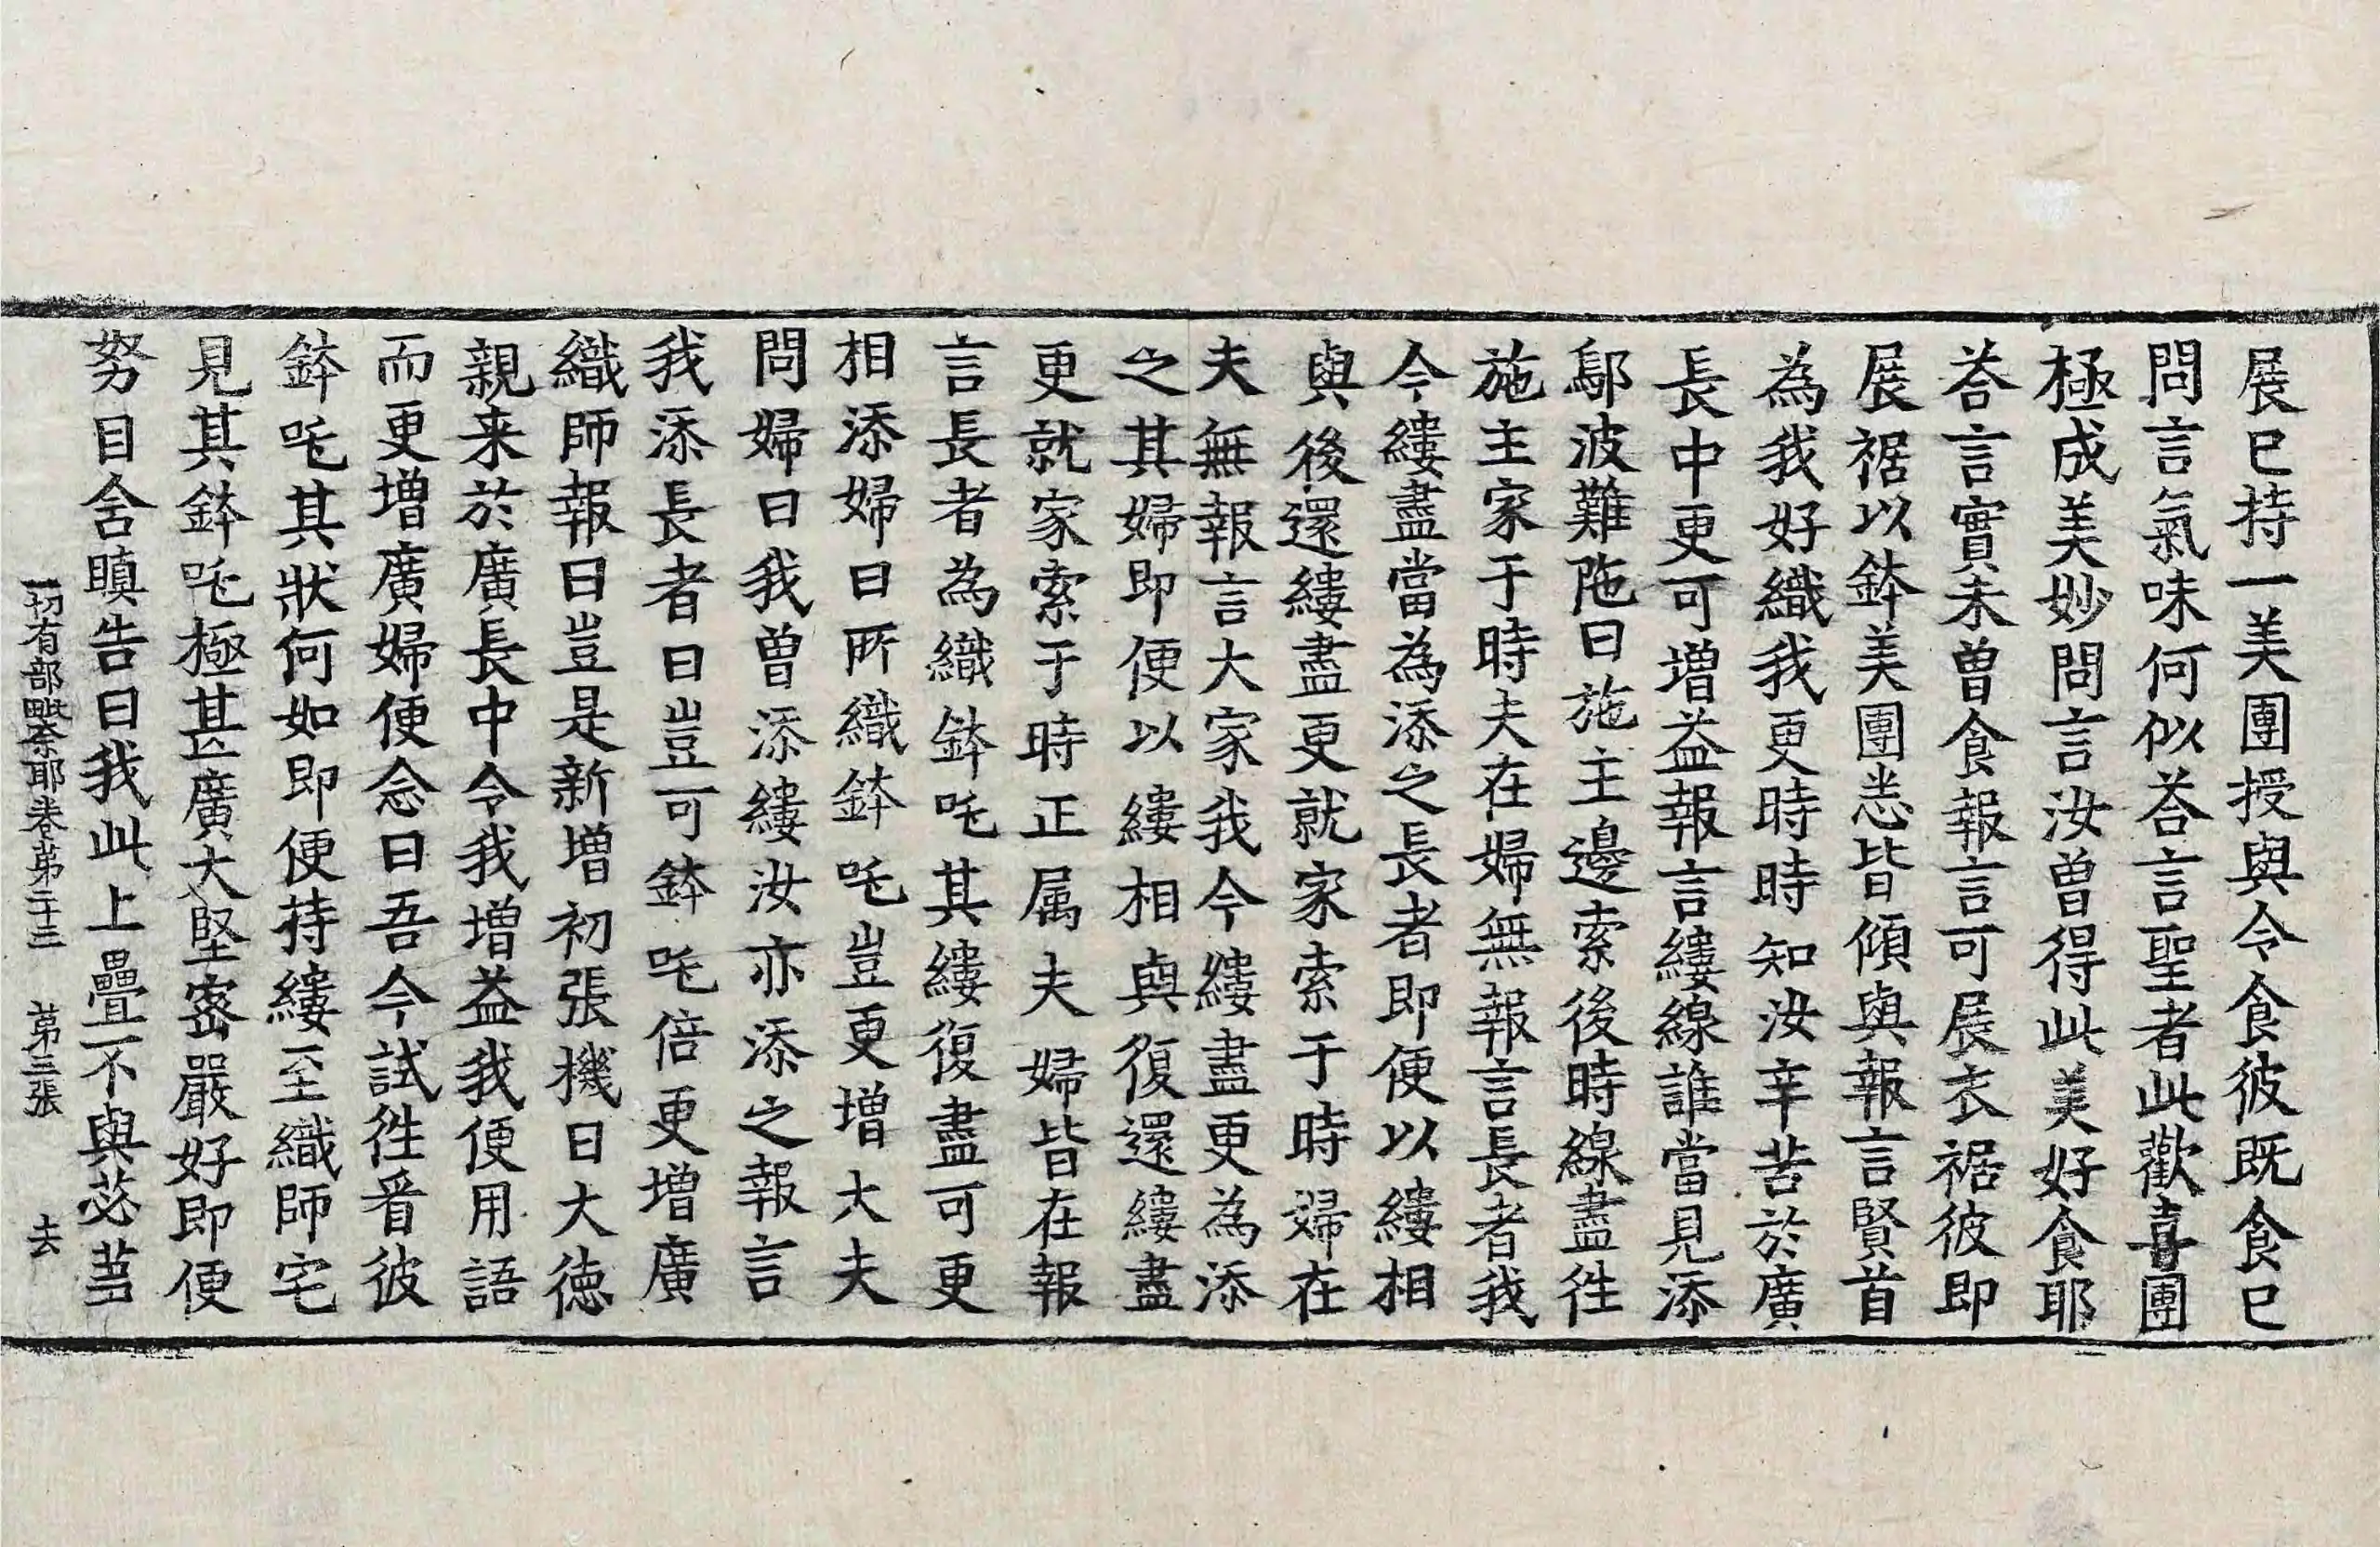 展已持一美團授與令食彼既食已
問言氣味何似荅言聖者此歡喜團
極成美妙問言汝曾得此美好食耶
荅言實未曾食報言可展衣裾彼即
展裾以鉢美團悉皆傾與報言賢首
為我好織我更時時知汝辛苦於廣
長中更可增益報言縷線誰當見添
鄔波難陁曰施主邊索後時線盡往
施主家于時夫在婦無報言長者我
今縷盡當為添之長者即便以縷相
與後還縷盡更就家索于時婦在
夫無報言大家我今縷盡更為添
之其婦即便以縷相與復還縷盡
更就家索于時正属夫婦皆在報
言長者為織鉢吒其縷復盡可更
相添婦曰所織鉢吒豈更增大夫
問婦曰我曾添縷汝亦添之報言
我添長者曰豈可鉢吒倍更增廣
織師報曰豈是新增初張機日大德
親来於廣長中令我增益我便用語
而更增廣婦便念曰吾今試往看彼
鉢吒其狀何如即便持縷至織師宅
見其鉢吒極甚廣大堅密嚴好即便
努目含瞋告曰我此上疊不與苾芻
一切有部毗奈耶卷第二十三　第三張　去